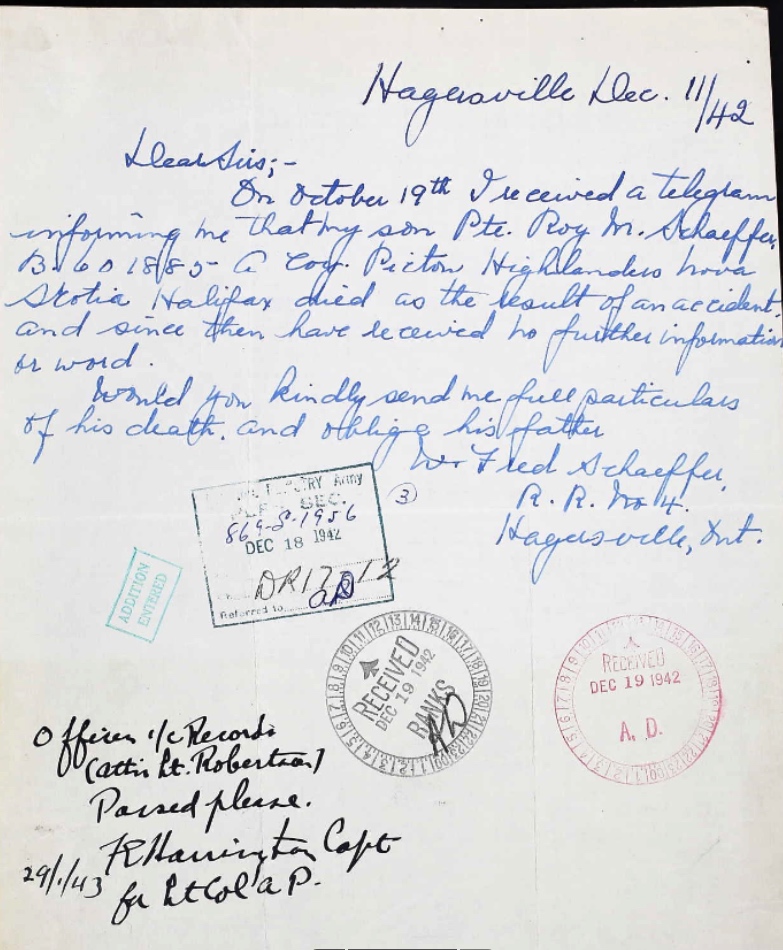 Hagersville Dec. 11/42
Dear Sirs;-
On October 19th I received a telegram
informing me that my son Pte. Roy M. Schaeffer
B-601885- A Coy. Picton Highlanders Nova
Scotia Halifax died as the result of an accident,
and since then have received no further information
or word.
Would you kindly send me full particulars
of his death. and oblige his father
Fred Schaeffer,
R. R. No 4.
Hagersville, Ont.
Army
SEC.
869-S-1956
DEC 18 1942
Referred to
3
ADDITION
ENTERED
RECEIVED
DEC 19 1942
RANKS
RECEIVED
DEC 19 1942
A. D.
Officer i/c Records
(attn Lt. Robertson)
Passed please.
Harrington Capt
29/1/43
for Lt Col a P.